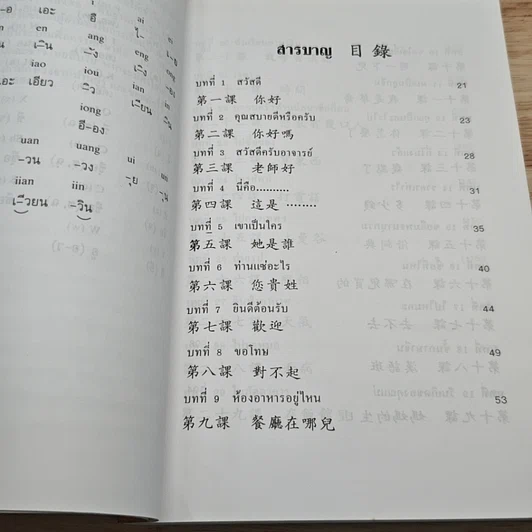 -อ เอะ อี ไ-
en ang ai
เ-ิน -ัง เ-ิง
iao iou eng ian in
เอียว -ิว เ-ียน -ิน
iong
อี-อง
uan uang ui
-วน -วง -ุย -ุน
üan üin
เ-วียน -วิน
สารบาญ 目錄
บทที่ 1 สวัสดี 21
第一課 你好
บทที่ 2 คุณสบายดีหรือครับ 23
第二課 你好嗎
บทที่ 3 สวัสดีครับอาจารย์ 28
第三課 老師好
บทที่ 4 นี่คือ.......... 31
第四課 這是 ········
บทที่ 5 เขาเป็นใคร 35
第五課 她是誰
บทที่ 6 ท่านแซ่อะไร 40
第六課 您貴姓
บทที่ 7 ยินดีต้อนรับ 44
第七課 歡迎
บทที่ 8 ขอโทษ 49
第八課 對不起
บทที่ 9 ห้องอาหารอยู่ไหน 53
第九課 餐廳在哪兒